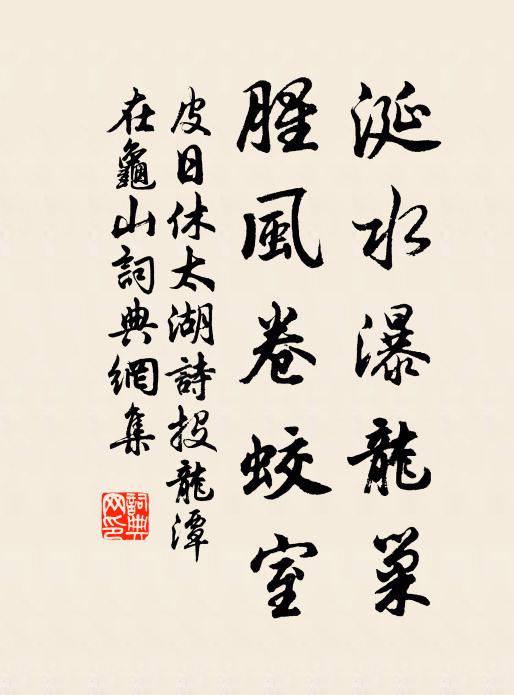 涎水瀑龍巢
腥風卷蛟室
皮日休太湖詩投龍潭
在龜山詞典網集
詞典
网印